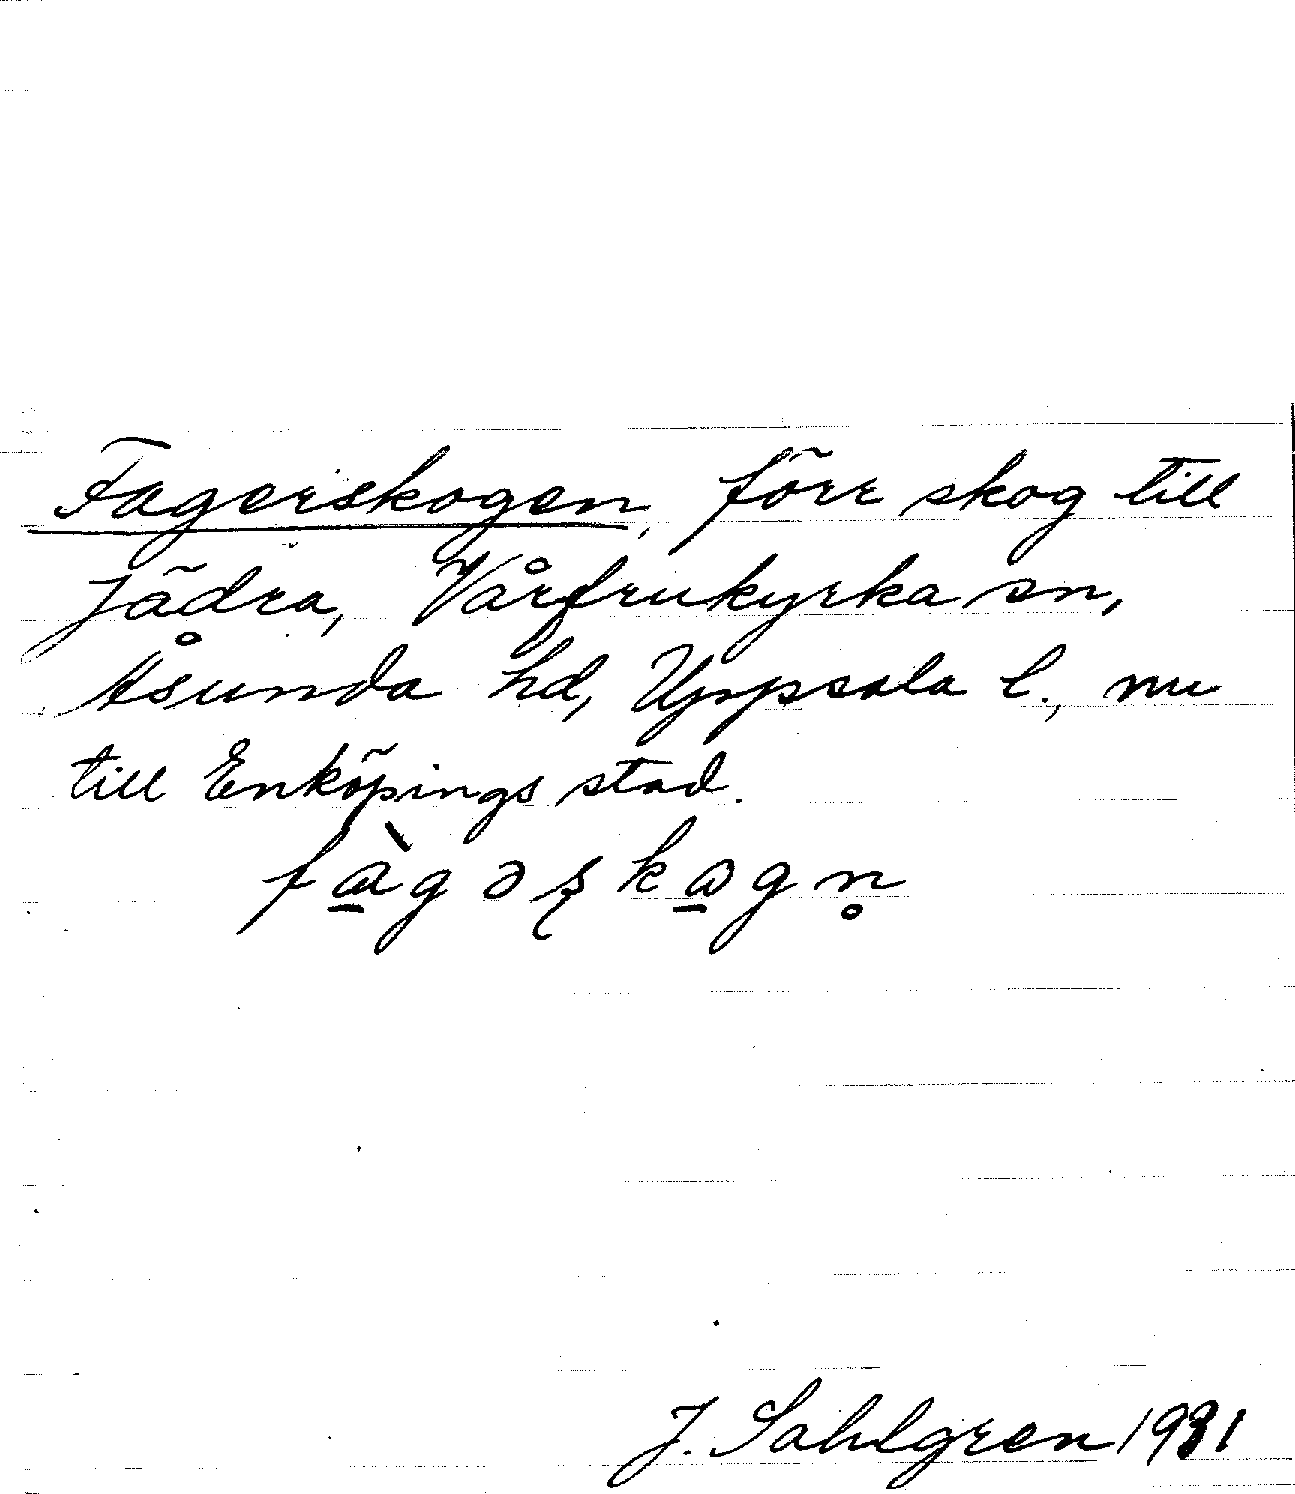 Fagerskogen, förr skog till
Jädra, Vårfrukyrka sn,
Åsunda hd, Uppsala l., nu
till Enköpings stad.
fà̱gəʂka̱gn̥
J. Sahlgren 1931